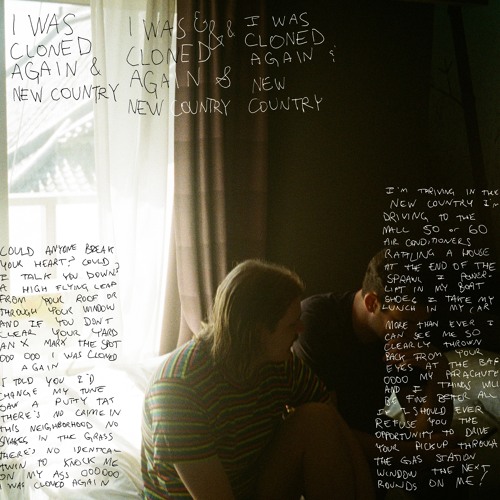 I WAS
CLONED
AGAIN &
NEW COUNTRY
I WAS & & &
CLONED
AGAIN &
NEW COUNTRY
I WAS
CLONED
AGAIN &
NEW
COUNTRY
COULD ANYONE BREAK
YOUR HEART? COULD
I TALK YOU DOWN?
A HIGH FLYING LEAP
FROM YOUR ROOF OR
THROUGH YOUR WINDOW
AND IF YOU DON'T
CLEAR YOUR YARD
AN X MARX THE SPOT
OOO OOO I WAS CLONED
AGAIN
I TOLD YOU I'D
CHANGE MY TUNE
SAW A PUTTY TAT
THERE'S NO CAME IN
THIS NEIGHBORHOOD NO
SNAKES IN THE GRASS
THERE'S NO IDENTICAL
TWIN TO KNOCK ME
ON MY ASS OOOOOO
I WAS CLONED AGAIN
I'M THRIVING IN THE
NEW COUNTRY I'M
DRIVING TO THE
MALL 50 OR 60
AIR CONDITIONERS
RATTLING A HOUSE
AT THE END OF THE
SPRAWL I POWER
LIFT IN MY BOAT
SHOES I TAKE MY
LUNCH IN MY CAR
MORE THAN EVER I
CAN SEE ME SO
CLEARLY THROWN
BACK FROM YOUR
EYES AT THE BAR
OOOO MY PARACHUTE
AND I THINGS WILL
BE FINE BETTER ALL
IF I SHOULD EVER
REFUSE YOU THE
OPPORTUNITY TO DRIVE
YOUR PICKUP THROUGH
THE GAS STATION
WINDOW THE NEXT
ROUNDS ON ME!